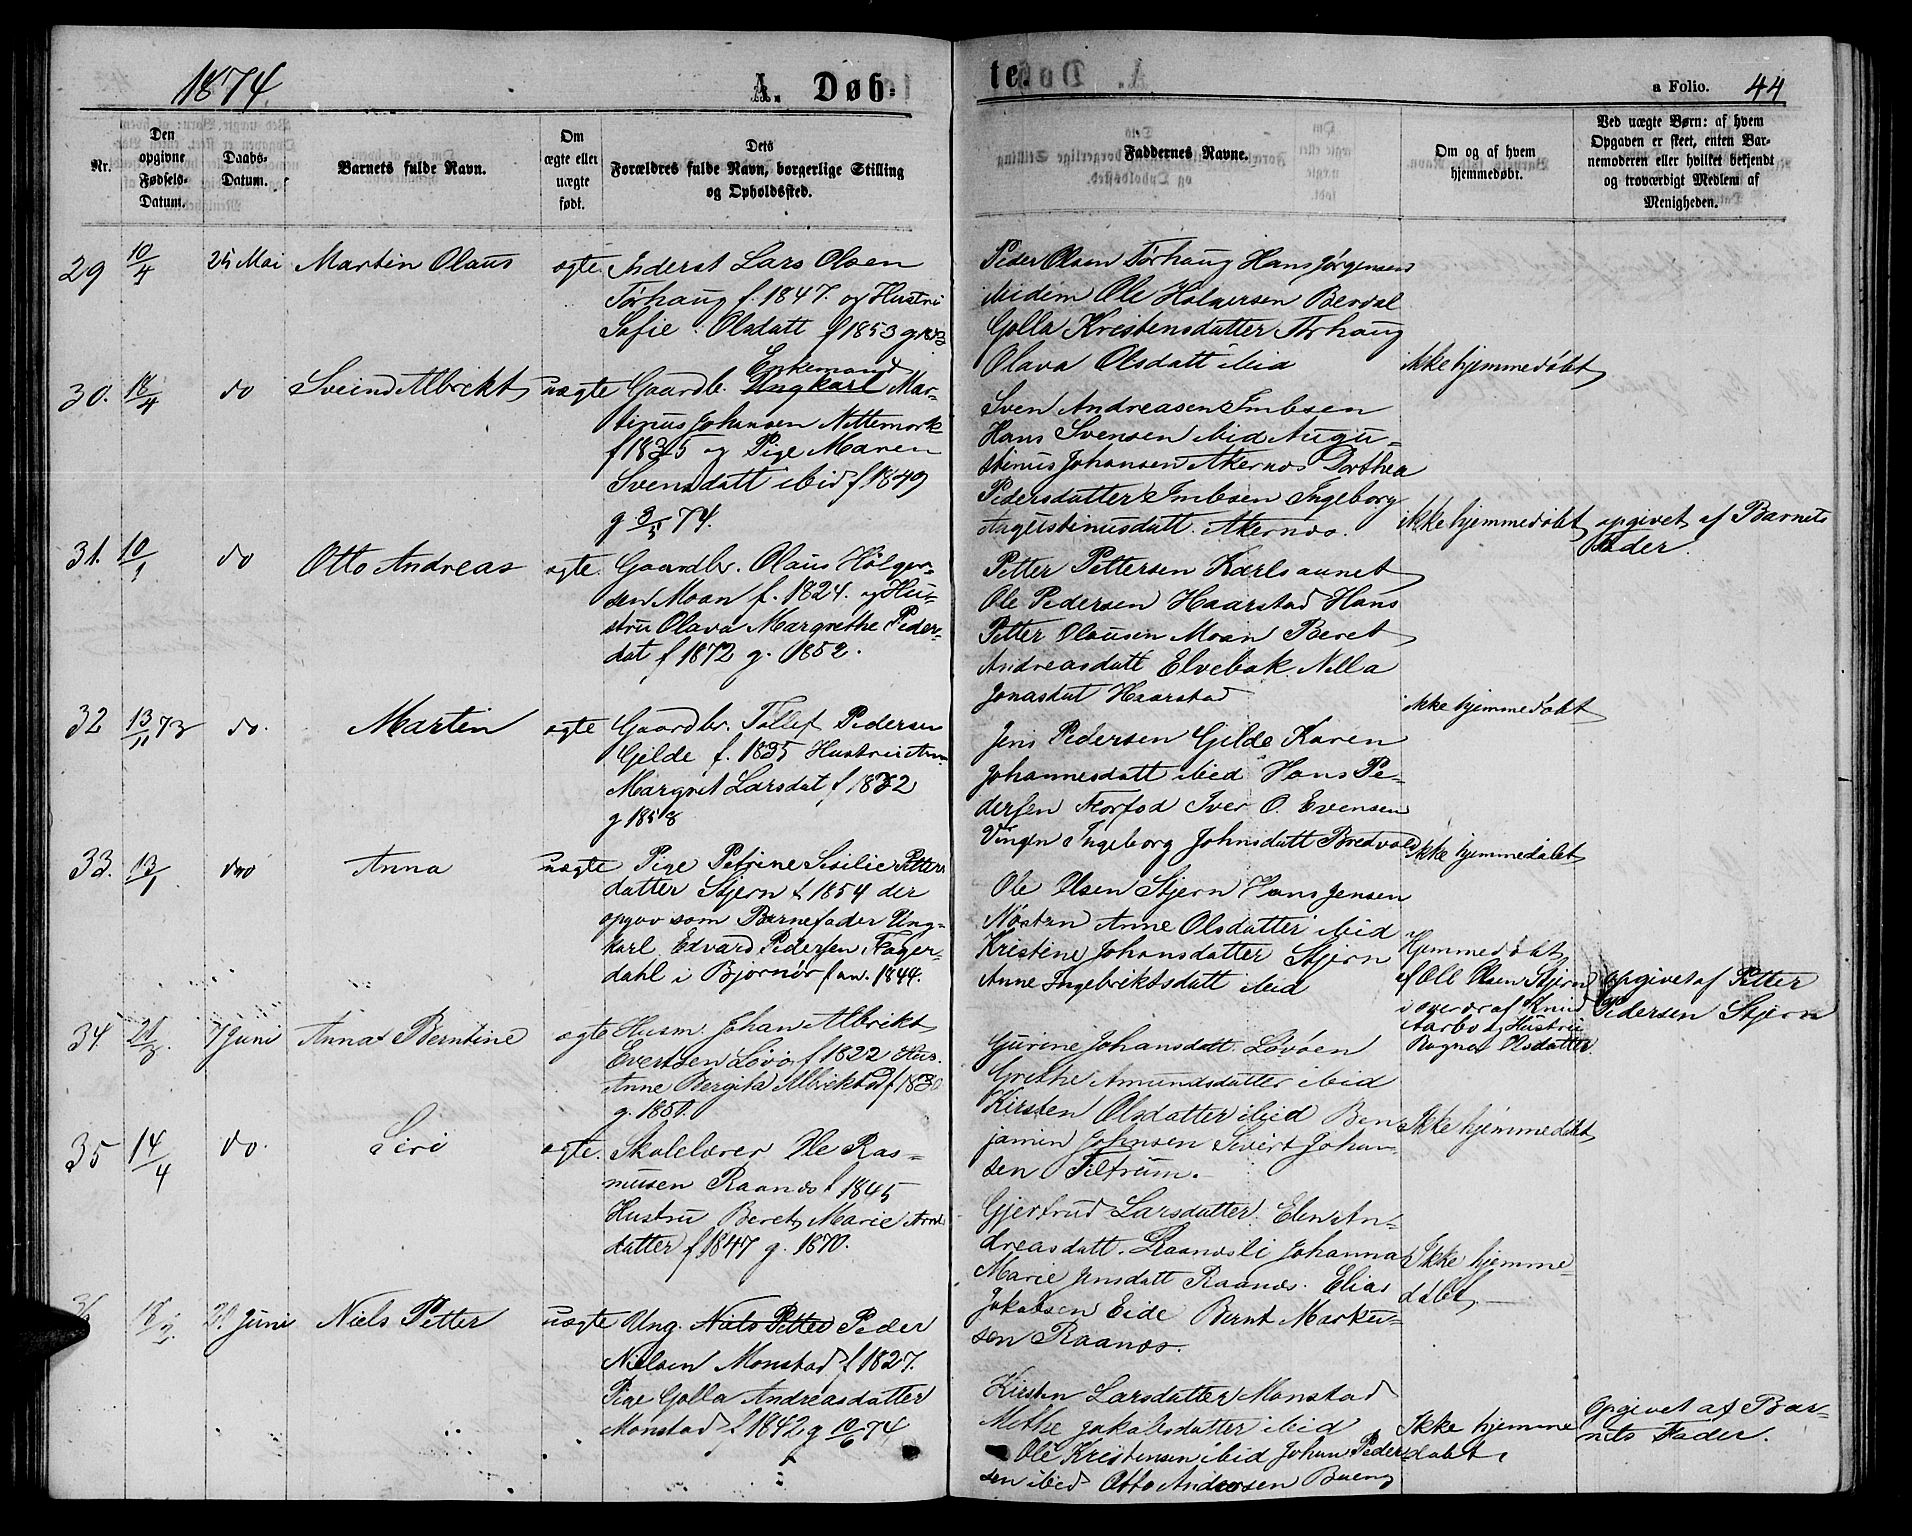 1874 A. Døb- te. a Folio. 44
Nr.
Den opgivne Fødsels-Datum.
Daabs-Datum.
Barnets fulde Navn.
Om ægte eller uægte født.
Dets Forældres fulde Navn, borgerlige Stilling og Opholdssted.
Faddernes Navne.
Om og af hvem hjemmedøbt.
Ved uægte Børn: af hvem Opgaven er skeet, enten Barnemoderen eller hvilket bekjendt og troværdigt Medlem af Menigheden.
29 10/4 25 Mai Martin Olaus ægte Inderst Lars Olsen
Tørhaug f. 1847. og Hustru
Sofie Olsdatt f 1853 g 1873
Peder Olsen Tørhaug Hans Jørgensen
ibidem Ole Holgersen Berdal
Golla Kristensdatter Tørhaug
Olava Olsdatt ibid
ikke hjemmedøbt
30. 18/4 do Svend Albrekt uægte Gaardb. Enkemand Ungkarl Mar-
tinus Johansen Nettemork
f 1835 og Pige Maren
Svensdatt ibid f 1849
g 3/5 74.
Sven Andreasen Imbsen
Hans Svensen ibid Augu-
stinus Johansen Akernes Dorthea
Pedersdatter Imbsen Ingeborg
Augustinusdatt. Akernes.
ikke hjemmedøbt
opgivet af Barnets
Fader.
31. 10/1 do Otto Andreas ægte. Gaardbr. Olaus Holger-
sen Moan f. 1824. og Hu-
stru Olava Margrethe Peder-
dat f 1872 g. 1852.
Petter Pettersen Karlsaunet
Ole Pedersen Haarstad Hans
Petter Olausen Moan Beret
Andreasdatt Elvebak. Nella
Jonasdat Haarstad
ikke hjemmedøbt
32 13/11 73 do. Martin ægte Gaardbr. Tollef Pedersen
Gjelde f. 1835 Hustru Ann
Margret Larsdat f 1832
g 1858
Jens Pedersen Gilde Karen
Johannesdatt ibid Hans Pe-
dersen Florfod Iver O. Evensen
Vingen Ingeborg Johnsdatt Bredvold
Ikke hjemmedøbt
33. 13/1 do Anna uægte Pige Petrine Sisilie Petters
datter Stjern f 1854 der
opgav som Barnefader Ung-
karl Edvard Pedersen, Fager-
dahl i Bjørnør f an. 1844.
Ole Olsen Stjern Hans Jensen
Nøsten Anne Olsdatter ibid
Kristine Johansdatter Stjern
Anne Ingebriktsdatt ibid
Hjemmedøbt
af Ole Olsen Stjern
i overvær af Knud
Aarbo og Hustru
Ragna Olsdatter.
opgivet af Petter
Pedersen Stjern
34. 21/3. 7 Juni Anna Berntine ægte Husm. Johan Albrekt
Evertsen Løvø f 1822 Hus.
Anne Bergita Albrektsd f 1830
g. 1850.
Gurine Johansdatt. Løvøen
Grethe Amundsdatter ibid
Kirsten Olsdatter ibid Ben
jamin Johnsen Sivert Johan
sen Tiltrum.
Ikke hjemmedøbt
35 14/4 do. Siri ægte. Skolelærer Ole Ras-
mussen Raanes f 1845
Hustru Beret Marie Arnt
datter f 1847 g. 1870.
Gjertrud Larsdatter Elen An-
dreasdatt. Raanesli Johanna
Marie Jensdatt Raanes. Elias
Jakobsen Eide Bernt Marku-
sen Raanes.
Ikke hjemme-
døbt
36 Juni Niels Petter uægte Ung. Niels Petter Peder
Nielsen Monstad f 1827.
Pige Golla Andreasdatter
Monstad f 1842 g 10/6 74
Kirsten Larsdatter Monstad
Mette Jakobsdatter ibid
Ole Kristensen ibid Johan Peder
sen ibid Otto Andersen Bueng
Ikke hjemme
døbt.
Opgivet af Bar-
nets Fader.